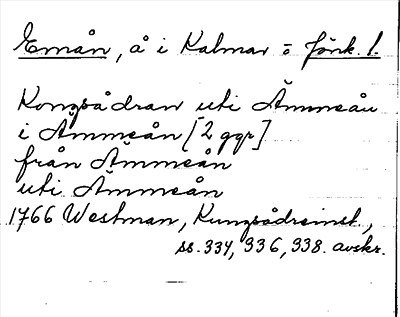 Emån, å i Kalmar o Jönk. l.
Kongsådran uti Ämmeån
i Ämmeån [2 ggr]
från Ämmeån
uti Ämmeån
1766 Westman, Kungsådreinst.,
ss. 334, 336, 338. avskr.